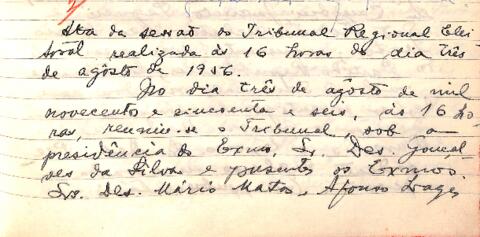 Ata da sessão do Tribunal Regional Elei
toral realizada às 16 horas do dia três
de agôsto de 1956.
No dia três de agôsto de mil
novecento e cincoenta e seis, às 16 ho-
ras, reuniu-se o Tribunal, sob a
presidência do Exmo. Sr. Des. Gonçal-
ves da Silva e presentes os Exmos.
Srs. Des. Mário Matos, Afonso Lages